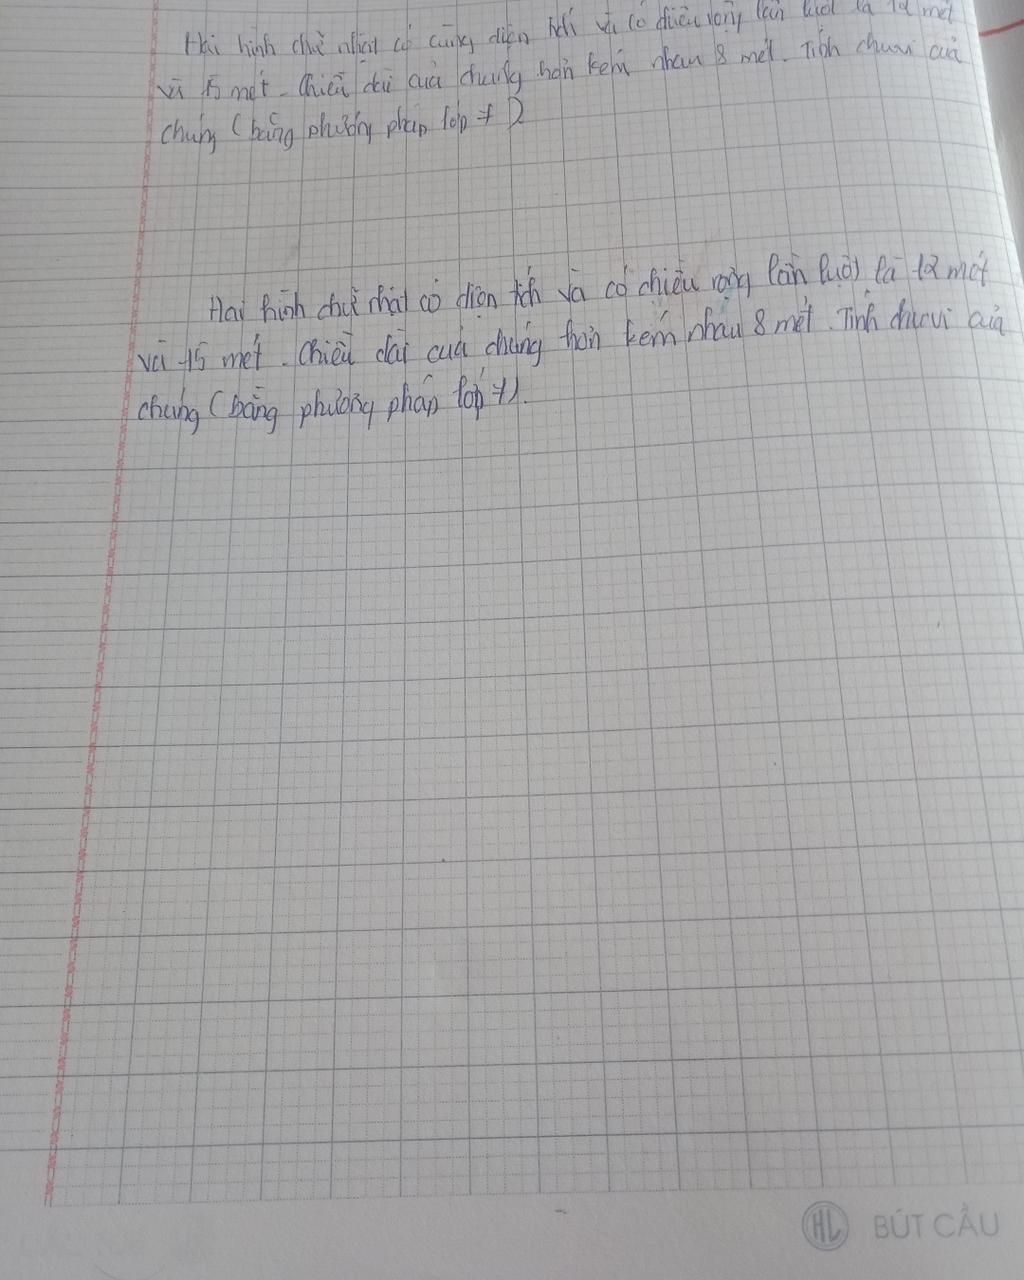 Hai hình chữ nhật có cùng diện tích và có chiều rộng lần lượt là 12 mét
và 15 mét. Chiều dài của chúng hơn kém nhau 8 mét. Tính chu vi của
chúng (bằng phương pháp lớp 7)
Hai hình chữ nhật có diện tích và có chiều rộng lần lượt là 12 mét
và 15 mét. Chiều dài của chúng hơn kém nhau 8 mét. Tính chu vi của
chúng (bằng phương pháp lớp 7).
HL BÚT CẦU